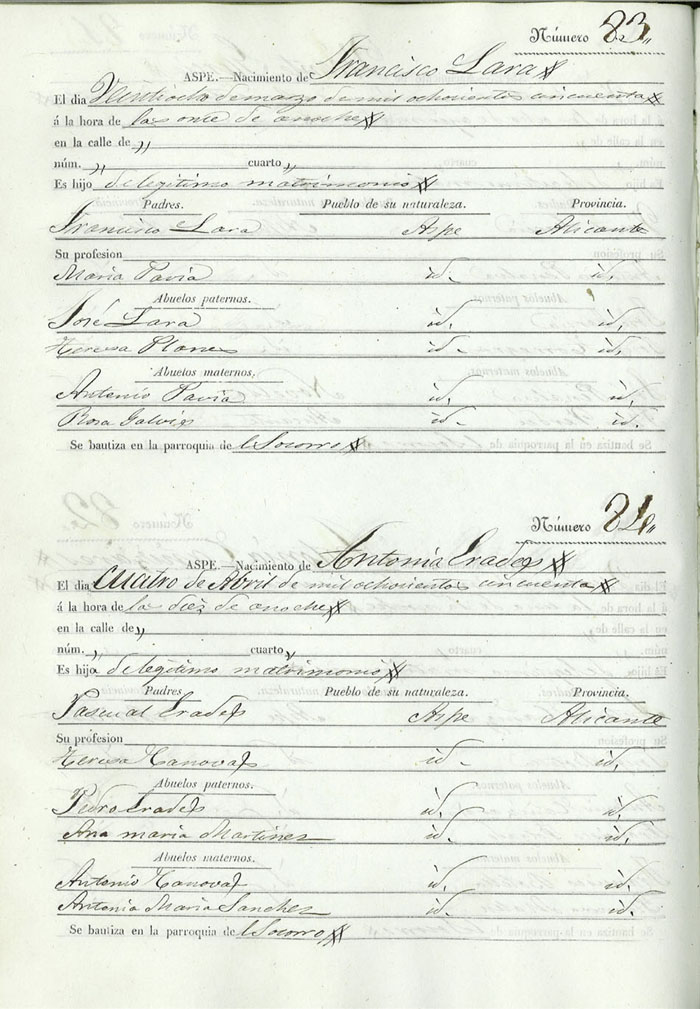 Número 83,,
ASPE.—Nacimiento de Francisco Lara
El dia Veintiocho de marzo de mil ochocientos cincuenta
á la hora de las once de anoche
en la calle de ,,
núm. ,, cuarto ,,
Es hijo de legitimo matrimonio
Padres. Pueblo de su naturaleza. Provincia.
Francisco Lara Aspe Alicante
Su profesion
Maria Pavia id. id.
Abuelos paternos.
José Lara id. id.
Teresa Planes id. id.
Abuelos maternos.
Antonio Pavia id. id.
Rosa Galvis id. id.
Se bautiza en la parroquia del Socorro
Número 84,,
ASPE.—Nacimiento de Antonia Erades
El dia Cuatro de Abril de mil ochocientos cincuenta
á la hora de la diez de anoche
en la calle de ,,
núm. ,, cuarto ,,
Es hija de legitimo matrimonio
Padres Pueblo de su naturaleza. Provincia.
Pascual Erades Aspe Alicante
Su profesion
Teresa Canovas id. id.
Abuelos paternos.
Pedro Erades id. id.
Ana maria Martinez id. id.
Abuelos maternos.
Antonio Canovas id. id.
Antonia Maria Sanchez id. id.
Se bautiza en la parroquia del Socorro